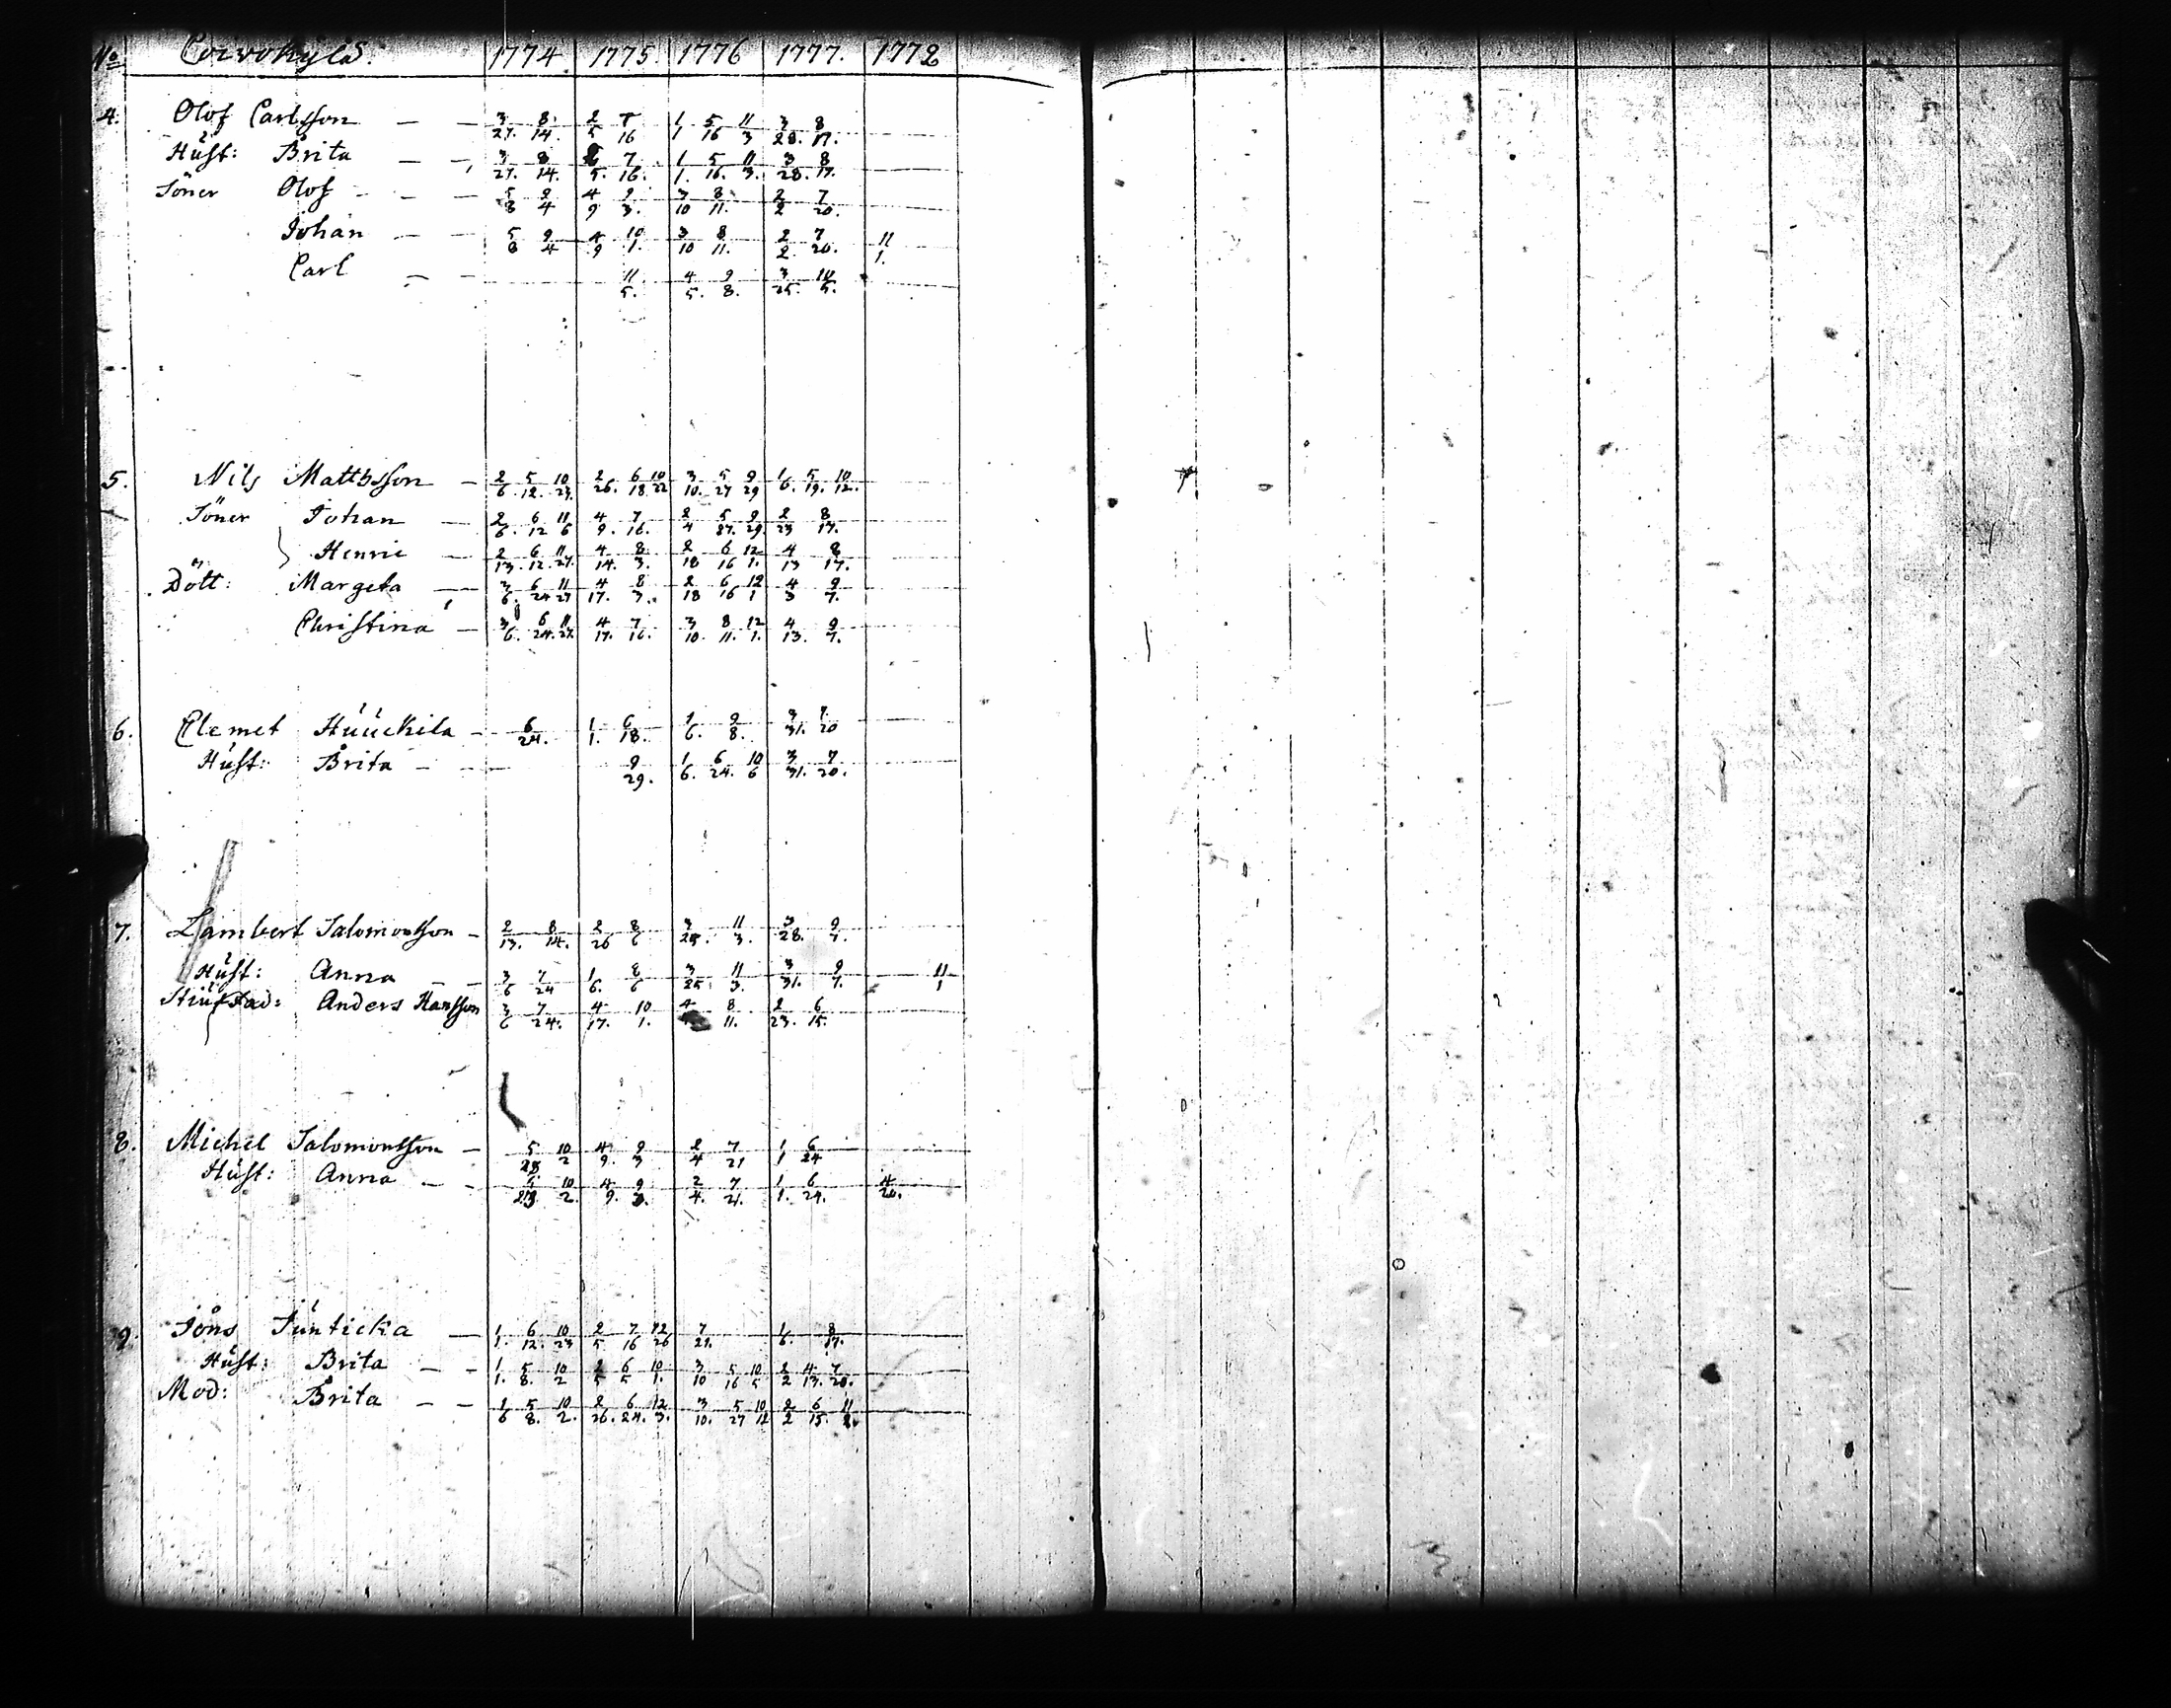 No Coivokylä. 1774 1775 1776 1777. 1772
4. Olof Carlsson — — 3/27. 8/14 2/5 7/16 1/1 5/16 11/3 3/28. 8/17.
Hust: Brita — — 3/27. 8/14. 2/5. 7/16. 1/1. 5/16. 11/3. 3/28. 8/17.
Söner Olof — — 5/8 9/4 4/9 9/3. 3/10 8/11. 2/2 7/20.
Johan — — 5/8 9/4 4/9 10/1. 3/10 8/11. 2/2. 7/20. 11/1.
Carl — — 11/5. 4/5. 9/8. 3/25. 10/5.
5. Nils Mattsson — 2/6. 5/12. 10/23. 2/26. 6/18 10/22 3/10. 5/27 9/29 1/6. 5/19. 10/12.
Söner Johan — 2/6. 6/12 11/6 4/9. 7/16. 2/4 5/27. 9/29. 2/23 8/17.
Henric — 2/13. 6/12. 11/27. 4/14. 8/3. 2/18 6/16 12/1. 4/13 8/17.
Dött: Margeta — 3/6. 6/24 11/27 4/17. 8/3. 2/18 6/16 12/1 4/3 9/7.
Christina — 3/6. 6/24. 11/27. 4/17. 7/16. 3/10. 8/11. 12/1. 4/13. 9/7.
6. Clemet Huuckila — 6/24. 1/1. 6/18. 1/6. 9/8. 3/31. 7/20
Hust: Brita — 9/29. 1/6. 6/24. 10/6 3/31. 7/20.
7. Lambert Salomonsson — 2/13. 8/14. 2/26 8/6 3/25. 11/3. 3/28. 9/7.
Hust: Anna — — 3/6 7/24 1/6. 8/6 3/25 11/3. 3/31. 9/7. 11/1
Anders Hansson 3/6 7/24. 4/17. 10/1. 8/11. 2/23. 6/15.
8. Michel Salomonsson — 5/28 10/2 4/9. 9/3 2/4 7/21 1/1 6/24
Hust: Anna — — 10/2. 4/9. 9/3. 2/4. 7/21. 1/1. 6/24. 4/20.
9. Jöns Junticka — 1/1. 6/12. 10/23 2/5 7/16 12/26 7/21. 1/6. 8/17.
Hust: Brita — — 1/1. 5/8. 10/2 2/5 6/5 10/1. 3/10 5/16 10/5 2/2 4/13. 7/20.
Mod: Brita — — 1/6 5/8. 10/2. 2/26. 6/24. 12/3. 3/10. 5/27 10/12 2/2 6/15. 11/2.